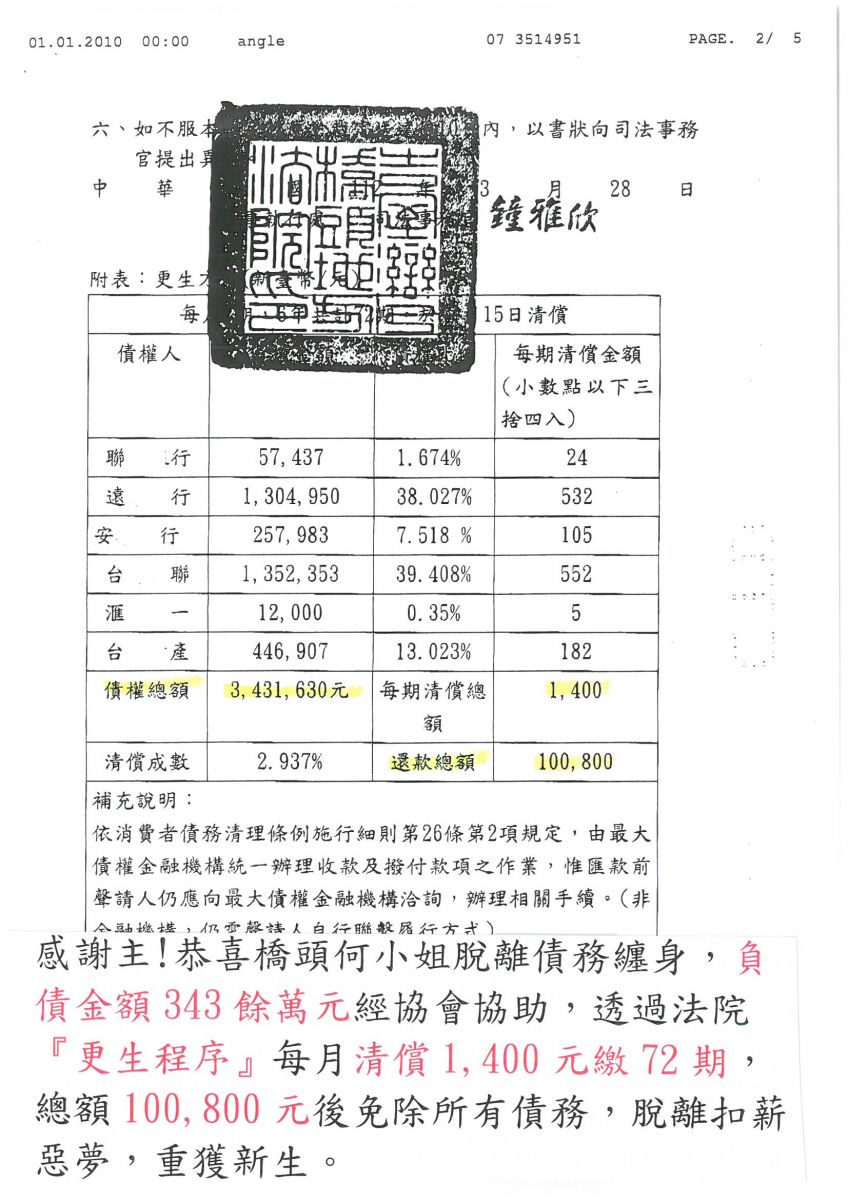 01.01.2010 00:00 angle 07 3514951 PAGE. 2/ 5
六、如不服本 10 內，以書狀向司法事務
官提出異
中 華 國 112 年 3 月 28 日
執行處 司法事務官 鐘雅欣
附表：更生方 (新臺幣/元)
每 6年共計72期， 15日清償
債權人 每期清償金額
(小數點以下三
捨四入)
聯 行 57,437 1.674% 24
遠 行 1,304,950 38.027% 532
安 行 257,983 7.518 % 105
台 聯 1,352,353 39.408% 552
滙 一 12,000 0.35% 5
台 產 446,907 13.023% 182
債權總額 3,431,630元 每期清償總 1,400
額
清償成數 2.937% 還款總額 100,800
補充說明：
依消費者債務清理條例施行細則第26條第2項規定，由最大
債權金融機構統一辦理收款及撥付款項之作業，惟匯款前
聲請人仍應向最大債權金融機構洽詢，辦理相關手續。(非
金融機構，仍需聲請人自行聯繫履行方式)
感謝主!恭喜橋頭何小姐脫離債務纏身，負
債金額 343 餘萬元經協會協助，透過法院
『更生程序』每月清償 1,400 元繳 72 期，
總額 100,800 元後免除所有債務，脫離扣薪
惡夢，重獲新生。